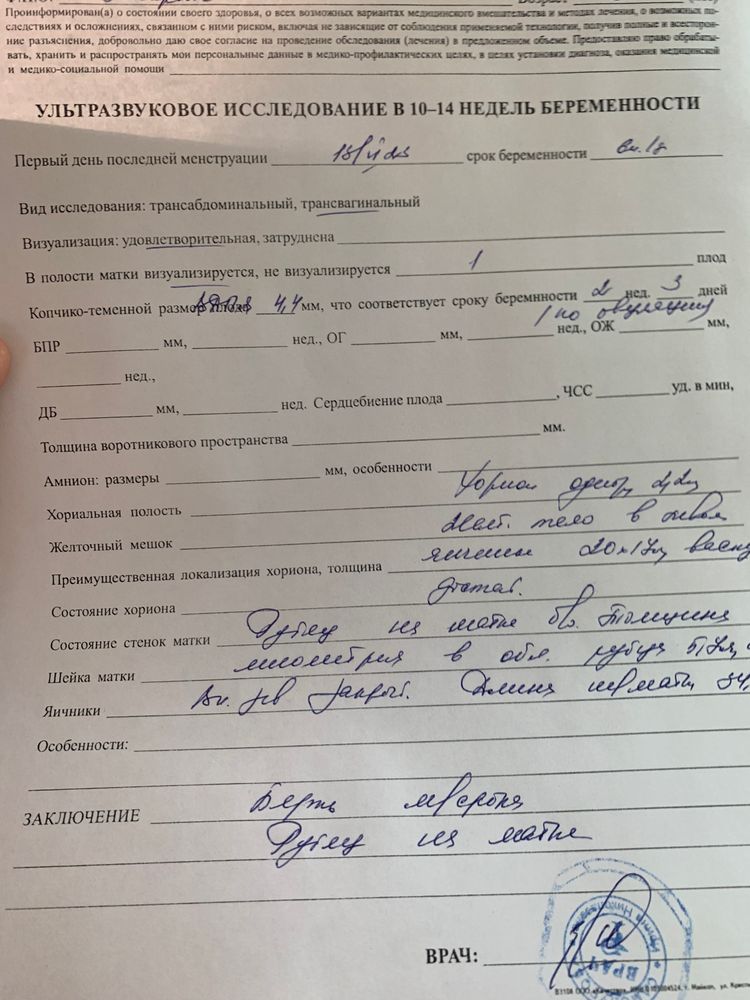 Проинформирован(а) о состоянии своего здоровья, о всех возможных вариантах медицинского вмешательства и методах лечения, о возможных по-
следствиях и осложнениях, связанном с ними риском, включая не зависящие от соблюдения применяемой технологии, получив полные и всесторон-
ние разъяснения, добровольно даю свое согласие на проведение обследования (лечения) в предложенном объеме. Предоставляю право обрабаты-
вать, хранить и распространять мои персональные данные в медико-профилактических целях, в целях установки диагноза, оказания медицинской
и медико-социальной помощи
УЛЬТРАЗВУКОВОЕ ИССЛЕДОВАНИЕ В 10–14 НЕДЕЛЬ БЕРЕМЕННОСТИ
Первый день последней менструации срок беременности
Вид исследования: трансабдоминальный, трансвагинальный
Визуализация: удовлетворительная, затруднена
В полости матки визуализируется, не визуализируется 1 плод
Копчико-теменной размер плода 4,4 мм, что соответствует сроку беремнности 2 нед. 3 дней
/ по овуляции
БПР мм, нед., ОГ мм, нед., ОЖ мм,
нед.,
ДБ мм, нед. Сердцебиение плода , ЧСС уд. в мин,
Толщина воротникового пространства мм.
Амнион: размеры мм, особенности
Хориальная полость Хорион
Желточный мешок Желт. тело в левом
Преимущественная локализация хориона, толщина яичнике 20х17мм
Состояние хориона
Состояние стенок матки Рубец на матке б/о. Толщина
Шейка матки миометрия в обл. рубца 5,7мм,
Яичники Вн. зев закрыт. Длина ш/матки 34,
Особенности:
ЗАКЛЮЧЕНИЕ Бер-ть м/срока
Рубец на матке
ВРАЧ:
ВРАЧ